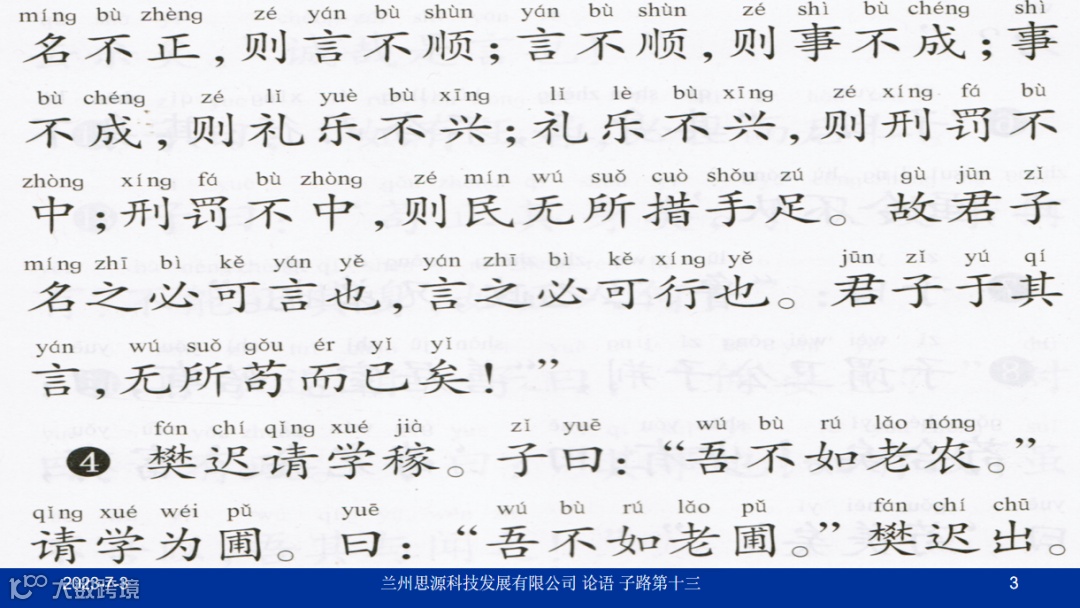 míng bù zhèng zé yán bù shùn yán bù shùn zé shì bù chéng shì
名不正,则言不顺;言不顺,则事不成;事
bù chéng zé lǐ yuè bù xīng lǐ lè bù xīng zé xíng fá bù
不成,则礼乐不兴;礼乐不兴,则刑罚不
zhòng xíng fá bù zhòng zé mín wú suǒ cuò shǒu zú gù jūn zǐ
中;刑罚不中,则民无所措手足。故君子
míng zhī bì kě yán yě yán zhī bì kě xíng yě jūn zǐ yú qí
名之必可言也,言之必可行也。君子于其
yán wú suǒ gǒu ér yǐ yǐ
言,无所苟而已矣!’”
fán chí qǐng xué jià zǐ yuē wú bù rú lǎo nóng
4 樊迟请学稼。子曰:“吾不如老农。”
qǐng xué wéi pǔ yuē wú bù rú lǎo pǔ fán chí chū
请学为圃。曰:“吾不如老圃。”樊迟出。
2023-7-3 兰州思源科技发展有限公司 论语 子路第十三 3
大数跨境